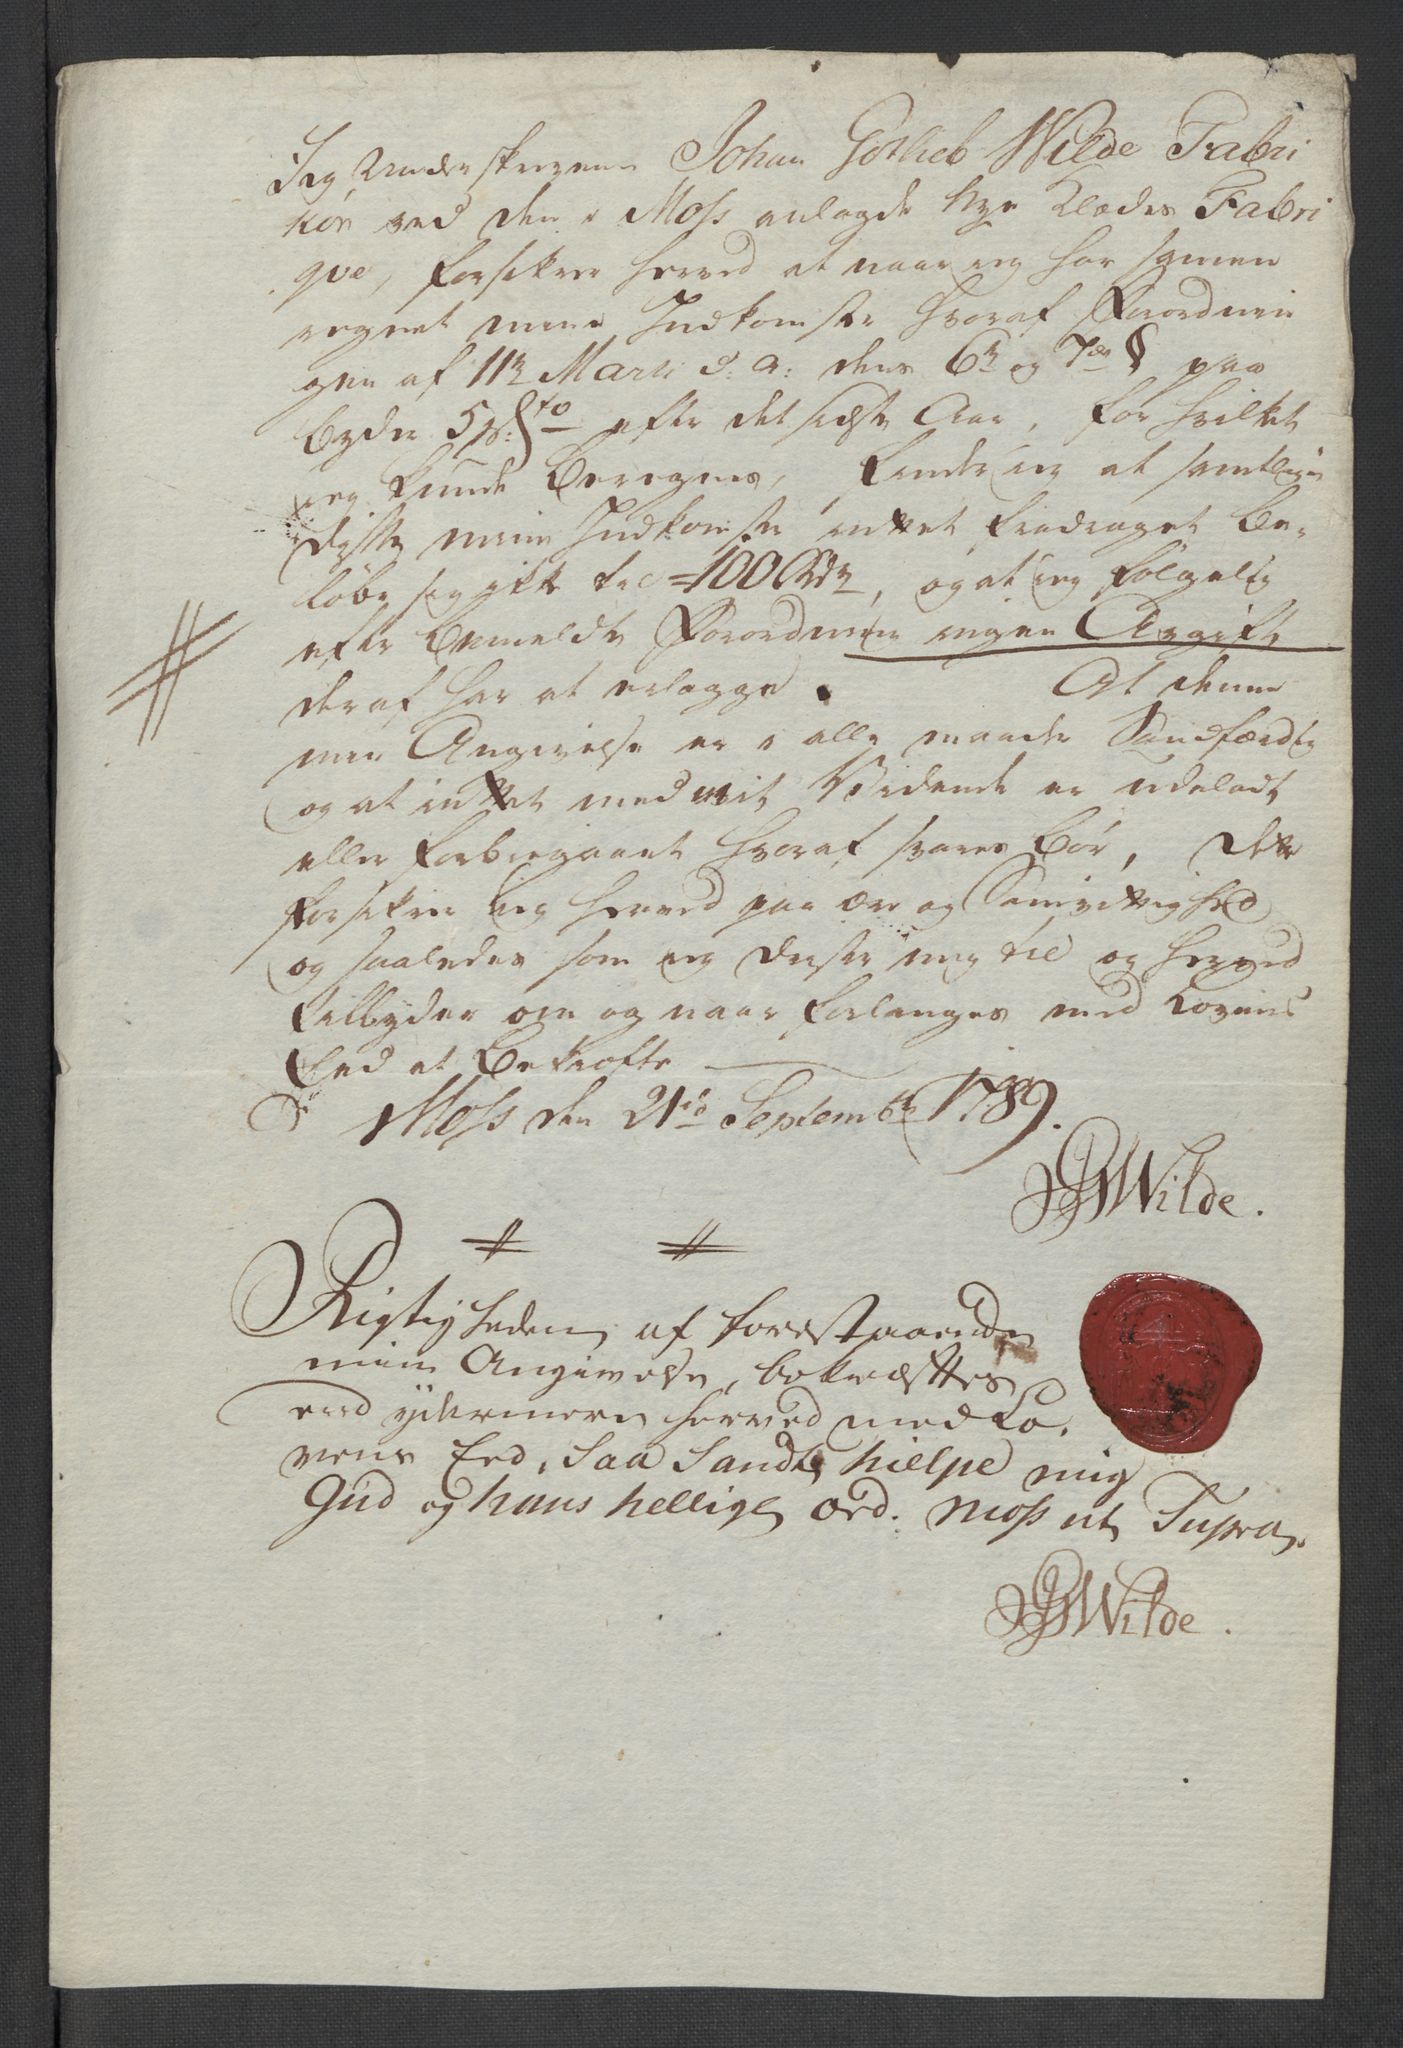 Jeg Underskrevene Johan Gotlieb Wilde Fabri
kør ved den i Moss anlagde Nye Klædes Fabri
qve, forsikrer herved at naar jeg har samen
regnet mine Indkomster hvoraf Forordnin
gen af 11te Marti d: a: dens 6te og 7de § paa
byder 5 p: Cto efter det sidste Aar, for hvilket
jeg kunde Beregnes, finder jeg at samtlige
disse mine Indkomster intet fradraget Be-
løbe sig ikke til 100 Rdr, og at jeg følgelig
efter bemeldte Forordning ingen Avgift
deraf har at erlægge. At denne
min Angivelse er i alle maader Sandfærdig
og at intet med mit Vidende er udeladt
eller forbiegaaet hvoraf svares bør, dette
forsikrer jeg herved paa ære og Samvittighed
og saaledes som jeg drister mig til og herved
tilbyder om og naar forlanges med Lovens
Eed at Bekræfte
Moss den 21de Septembr 1789.
JGWilde.
Rigtigheden af forestaaende
min Angivelse, bekræftes
end ydermere herved med Lo-
vens Eed, Saa Sandt hielpe mig
Gud og hans hellige ord. Moss ut Supra.
JGWilde.